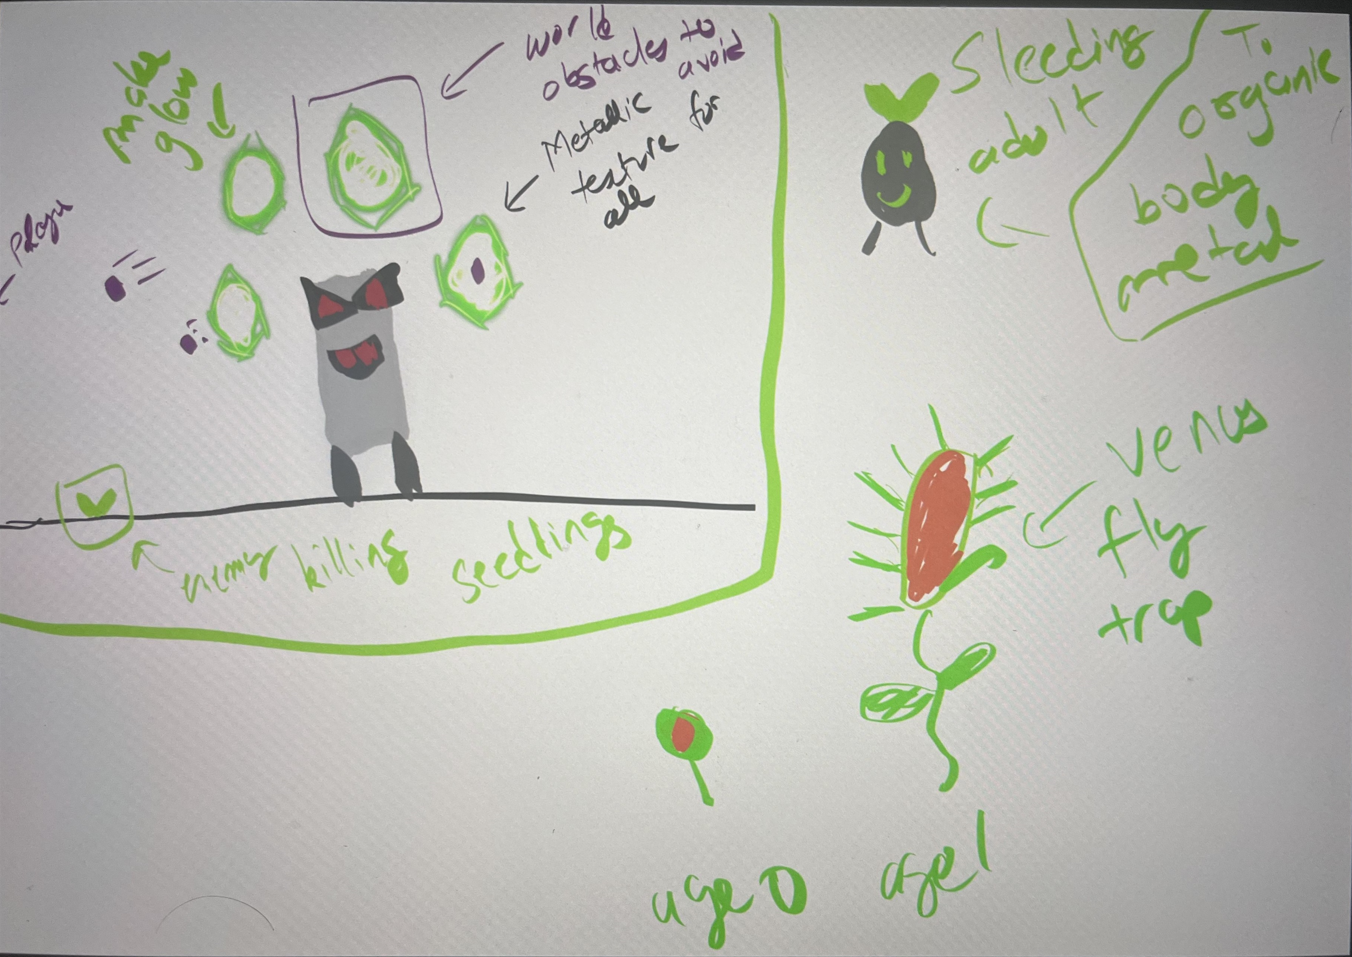 make
glow
world
obstacles to
avoid
Metallic
texture for
all
enemy killing seedlings
Sleeding
adult
To
organic
body
metal
venus
fly
trap
age 0
age 1